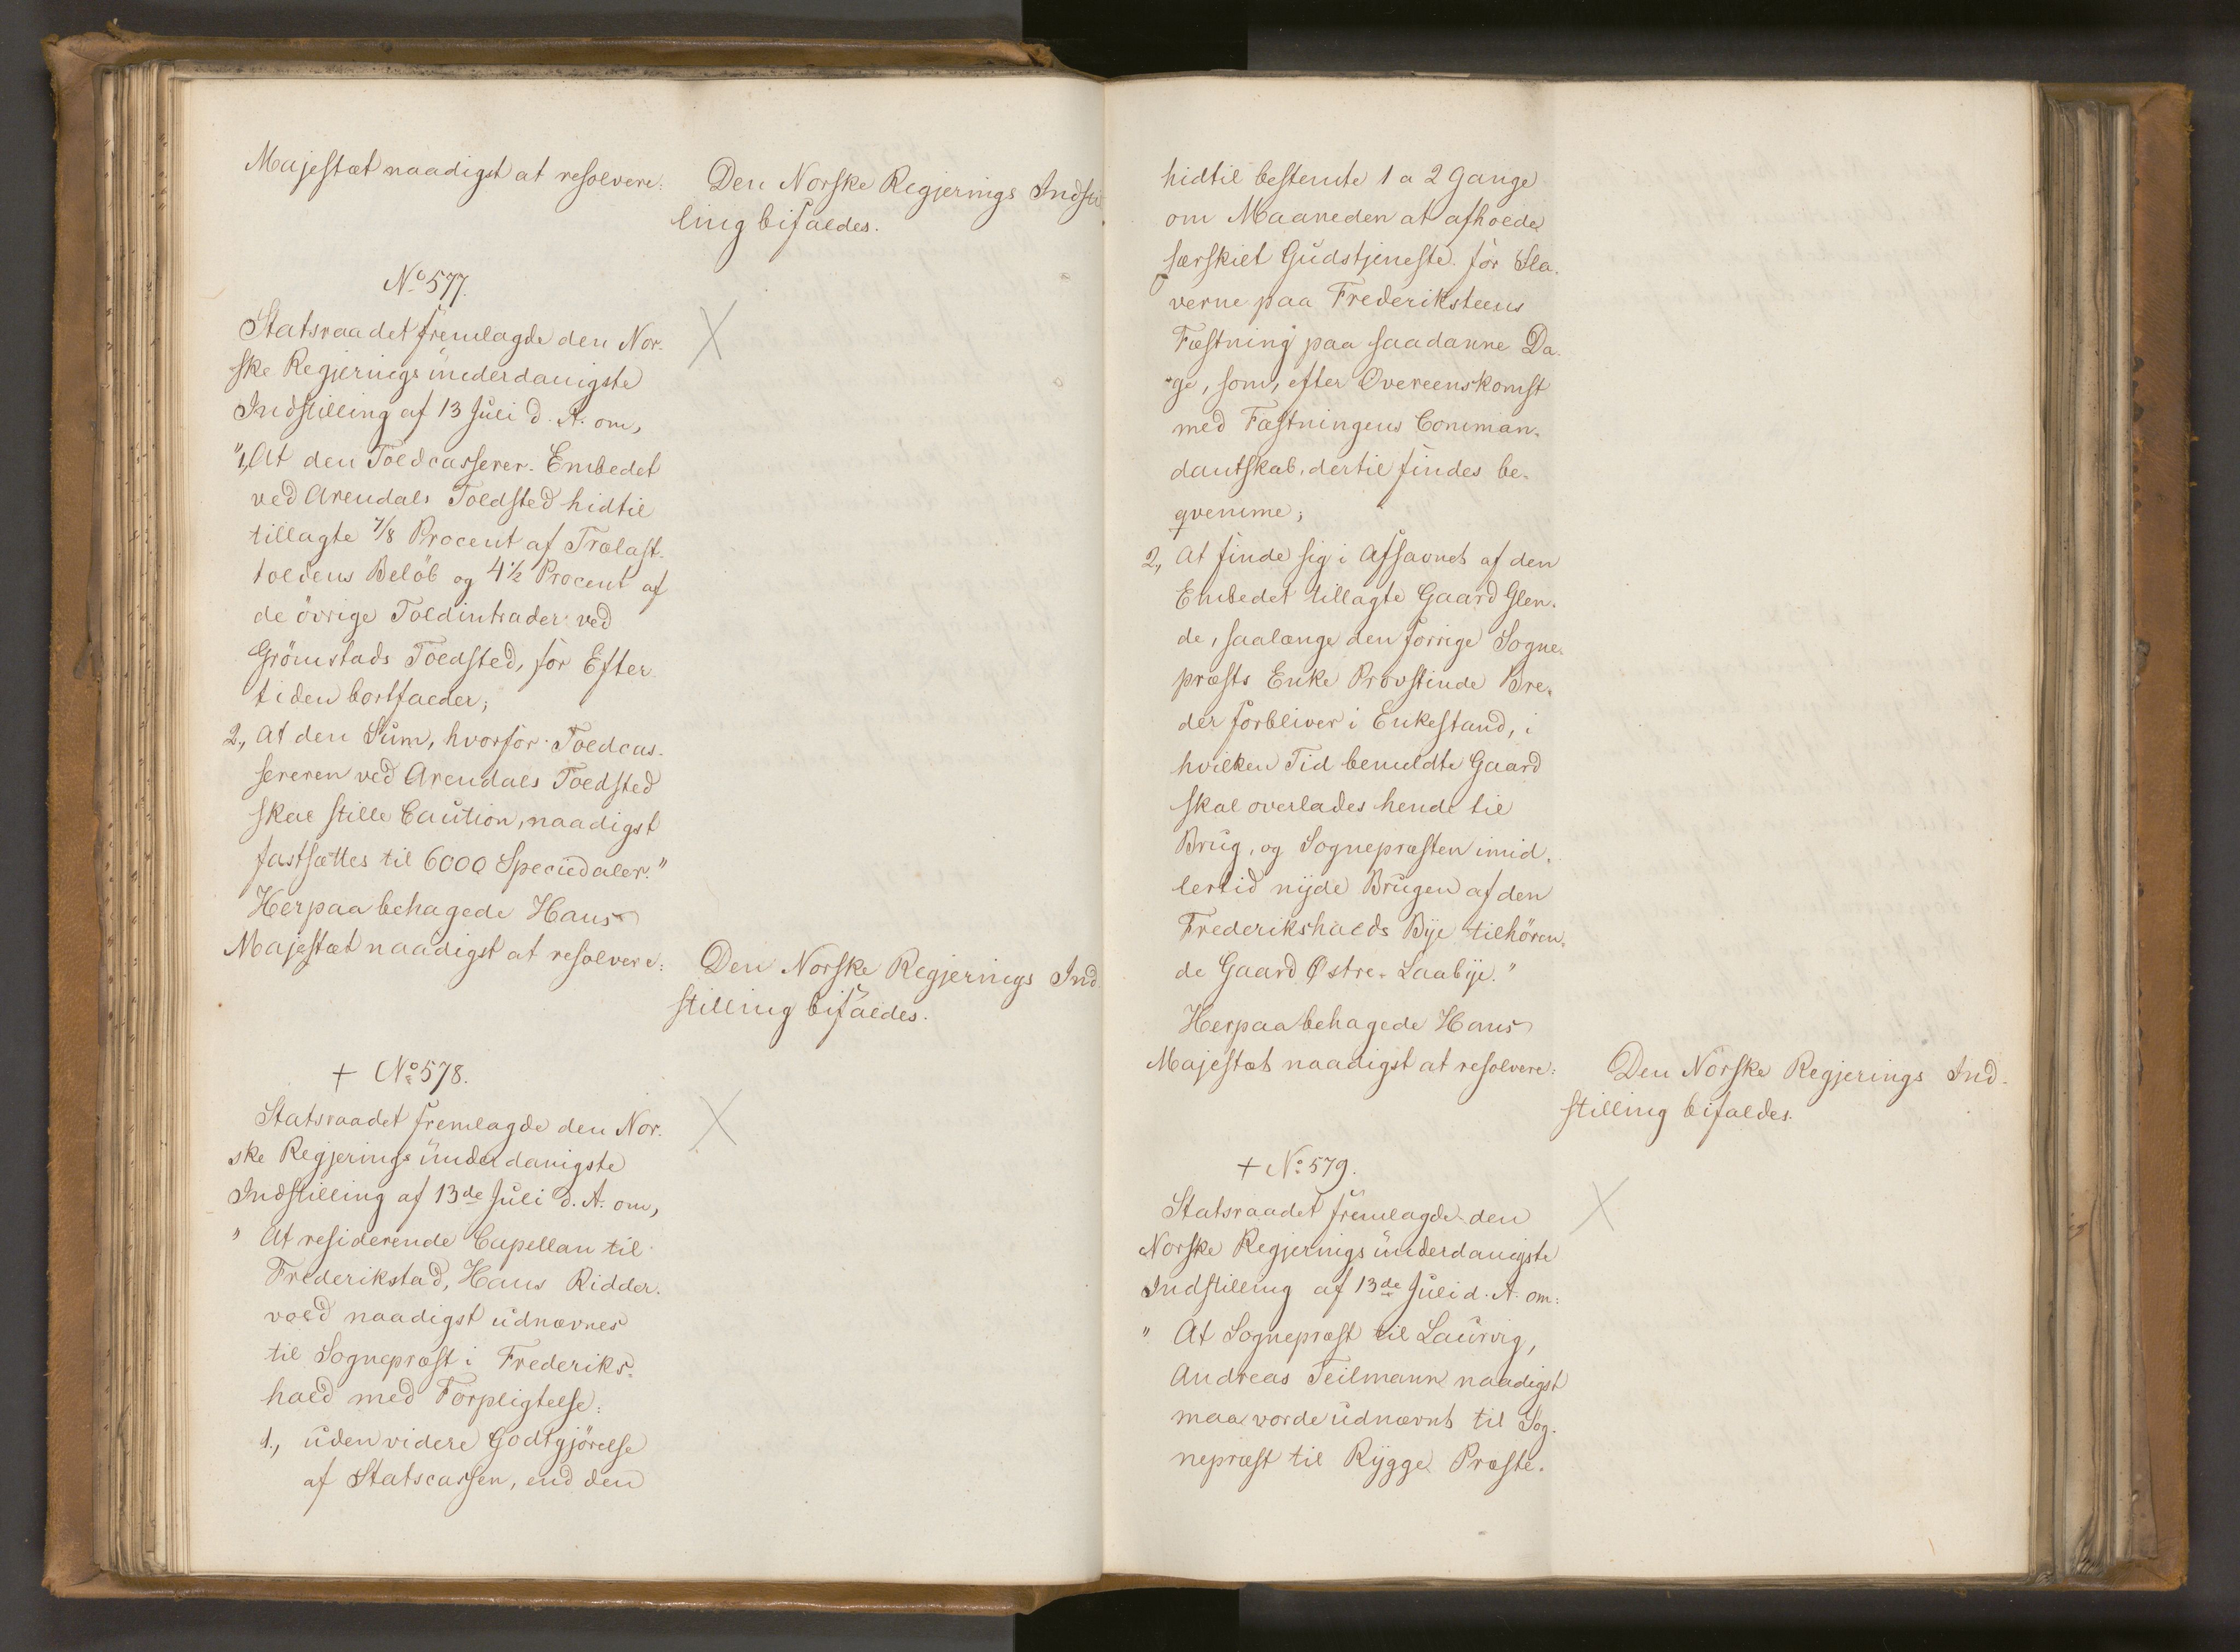 Majestæt naadigst at resolvere:
Den Norske Regjerings Indsti
ling bifaldes.
No 577.
Statsraadet fremlagde den Nor-
ske Regjerings underdanigste
Indstilling af 13 Juli d. A. om,
"1, At den Toldcasserer-Embedet
ved Arendals Toldsted hidtil
tillagte 7/8 Procent af Trælast-
toldens Belöb og 4 1/2 Procent af
de övrige Toldintrader ved
Grömstads Toldsted, for Efter-
tiden bortfalder;
2, At den Sum, hvorfor Toldcas-
sereren ved Arendals Toldsted
skal stille Caution, naadigst
fastsættes til 6000 Speciedaler."
Herpaa behagede Hans
Majestæt naadigst at resolvere:
Den Norske Regjerings Ind
stilling bifaldes.
+ No 578.
Statsraadet fremlagde den Nor-
ske Regjerings underdanigste
Indstilling af 13de Juli d. A. om,
" At residerende Capellan til
Frederikstad, Hans Ridder-
vold naadigst udnævnes
til Sognepræst i Frederiks-
hald med Forpligtelse:
1., uden videre Godtgjörelse
af Statscassen, end den
hidtil bestemte 1 a 2 Gange
om Maaneden at afholde
særskilt Gudstjeneste for Sla-
verne paa Frederiksteens
Fæstning paa saadanne Da-
ge, som, efter Overeenskomst
med Fæstningens Comman-
dantskab, dertil findes be-
qvemme;
2, At finde sig i Afsavnet af den
Embedet tillagte Gaard Glen-
de, saalænge den forrige Sogne-
præsts Enke Provstinde Bre-
der forbliver i Enkestand, i
hvilken Tid bemeldte Gaard
skal overlades hende til
Brug, og Sognepræsten imid-
lertid nyde Brugen af den
Frederikshalds Bye tilhören-
de Gaard Østre-Laabye."
Herpaa behagede Hans
Majestæt naadigst at resolvere:
Den Norske Regjerings Ind-
stilling bifaldes.
+ No 579.
Statsraadet fremlagde den
Norske Regjerings underdanigste
Indstilling af 13de Juli d. A. om:
" At Sognepræst til Laurvig,
Andreas Teilmann naadigst
maa vorde udnævnt til Sog-
nepræst til Rygge Præste-